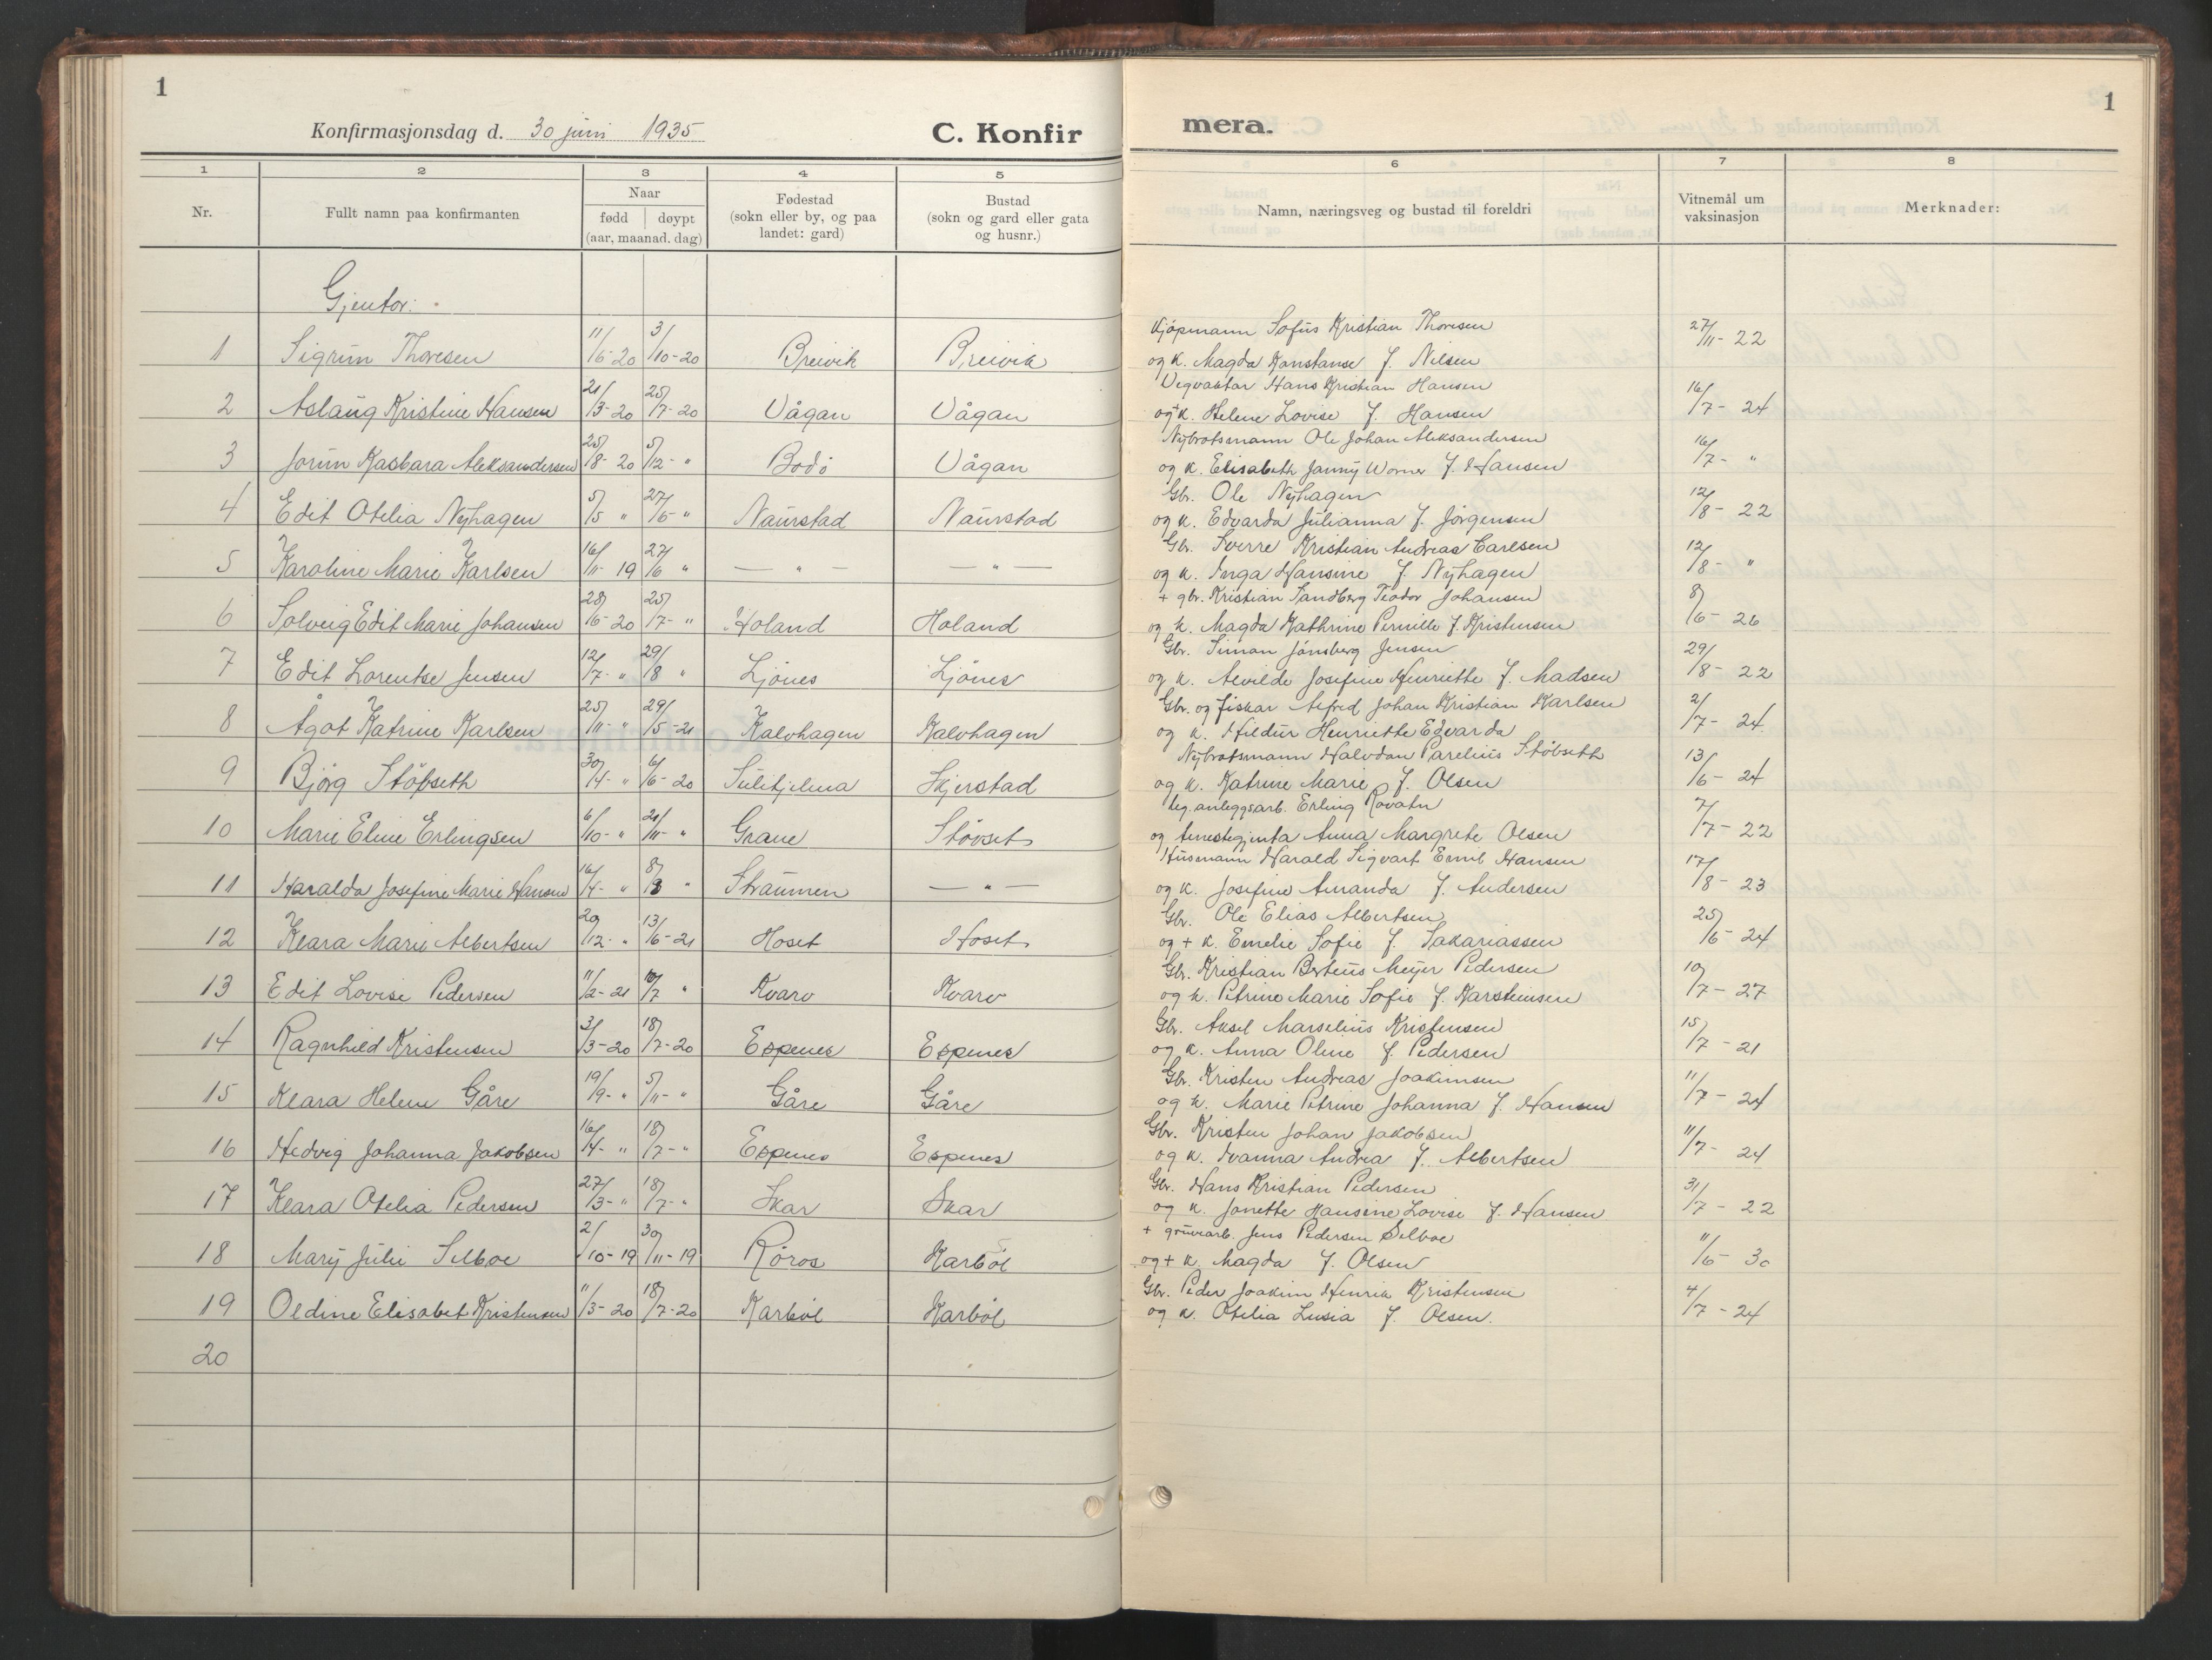 1
Konfirmasjonsdag d. 30 juni 1935
C. Konfir
mera.
1
1 2 3 4 5 6 7 8
Nr.
Fullt namn paa konfirmanten
Naar
fødd døypt
(aar, maanad, dag)
Fødestad
(sokn eller by, og paa
landet: gard)
Bustad
(sokn og gard eller gata
og husnr.)
Namn, næringsveg og bustad til foreldri
Vitnemål um
vaksinasjon
Merknader:
Gjentor:
1 Sigrun Thoresen 11/6-20 3/10-20 Breivik Breivik Kjøpmann Sofus Kristian Thoresen 27/11-22
og k. Magda Konstanse f. Nilsen
2 Aslaug Kristine Hansen 21/3-20 25/7-20 Vågan Vågan Vegvaktar Hans Kristian Hansen 16/7-24
og k. Helene Lovise f. Hansen
3 Jorun Kasbara Aleksandersen 25/8-20 5/12-" Bodö Vågan Nybrotsmann Ole Johan Aleksandersen 16/7-"
og k. Elisabeth Janny f. Hansen
4 Edit Otelia Nyhagen 5/5 " 27/6-" Naurstad Naurstad Gbr. Ole Nyhagen 12/8-22
og k. Edvarda Julianna f. Jörgensen
5 Karoline Marie Karlsen 16/11-19 27/6 " — " — — " — Gbr. Sverre Kristian Andreas Carlsen 12/8-"
og k. Inga Hansine f. Nyhagen
6 Solveig Edit Marie Johansen 28/6-20 25/7-" Holand Holand + gbr. Kristian Sandberg Teodor Johansen 8/6-26
og k. Magda Kathrine Pernille f. Kristensen
7 Edit Lorentse Jensen 12/7-" 29/8 " Ljönes Ljönes Gbr. Simon Jönsberg Jensen 29/8-22
og k. Alvilde Josefine Henriette f. Madsen
8 Ågot Katrine Karlsen 25/11-" 29/5-21 Kalvhagen Kalvhagen Gbr. og fiskar Alfred Johan Kristian Karlsen 2/7-24
og k. Hildur Henriette Edvarda
9 Björg Stöbseth 30/4-" 6/6-20 Sulitjelma Skjerstad Nybrotsmann Halvdan Parelius Stöbseth 13/6-24
og k. Katrine Marie f. Olsen
10 Marie Eline Erlingsen 6/10-" 21/11-" Grane Stövset leg. anleggsarb. Erling Rovatn 7/7-22
og tenestegjenta Anna Margrete Olsen
11 Haralda Josefine Marie Hansen 16/4-" 8/8 " Straumen — " — Husmann Harald Sigvart Emil Hansen 17/8-23
og k. Josefine Amanda f. Andersen
12 Klara Marie Albertsen 29/12-" 13/6-21 Hoset Hoset Gbr. Ole Elias Albertsen 25/6-24
og + k. Emelie Sofie f. Sakariassen
13 Edit Lovise Pedersen 11/2-21 10/7 " Kvarv Kvarv Gbr. Kristian Berteus Meyer Pedersen 10/7-27
og k. Petrine Marie Sofie f. Karsteinsen
14 Ragnhild Kristensen 3/3-20 18/7-20 Espenes Espenes Gbr. Aksel Marselius Kristensen 15/7-21
og k. Anna Oline f. Pedersen
15 Klara Helene Gåre 19/9-" 5/11-" Gåre Gåre Gbr. Kristen Andreas Joakimsen 11/7-24
og k. Marie Petrine Johanna f. Hansen
16 Hedvig Johanna Jakobsen 16/4-" 18/7-" Espenes Espenes Gbr. Kristen Johan Jakobsen 11/7-24
og k. Ivanna Andrea f. Albertsen
17 Klara Otelia Pedersen 27/3-" 18/7-" Skar Skar Gbr. Hans Kristian Pedersen 31/7-22
og k. Jonette Hansine Lovise f. Hansen
18 Mary Julie Selboe 2/10-19 30/11-19 Röros Karböl + gruvearb. Jens Pedersen Selboe 11/6-30
og + k. Magda f. Olsen
19 Oldine Elisabet Kristensen 11/3-20 18/7-20 Karböl Karböl Gbr. Peder Joakim Henrik Kristensen 4/7-24
og k. Otelia Lusia f. Olsen.
20